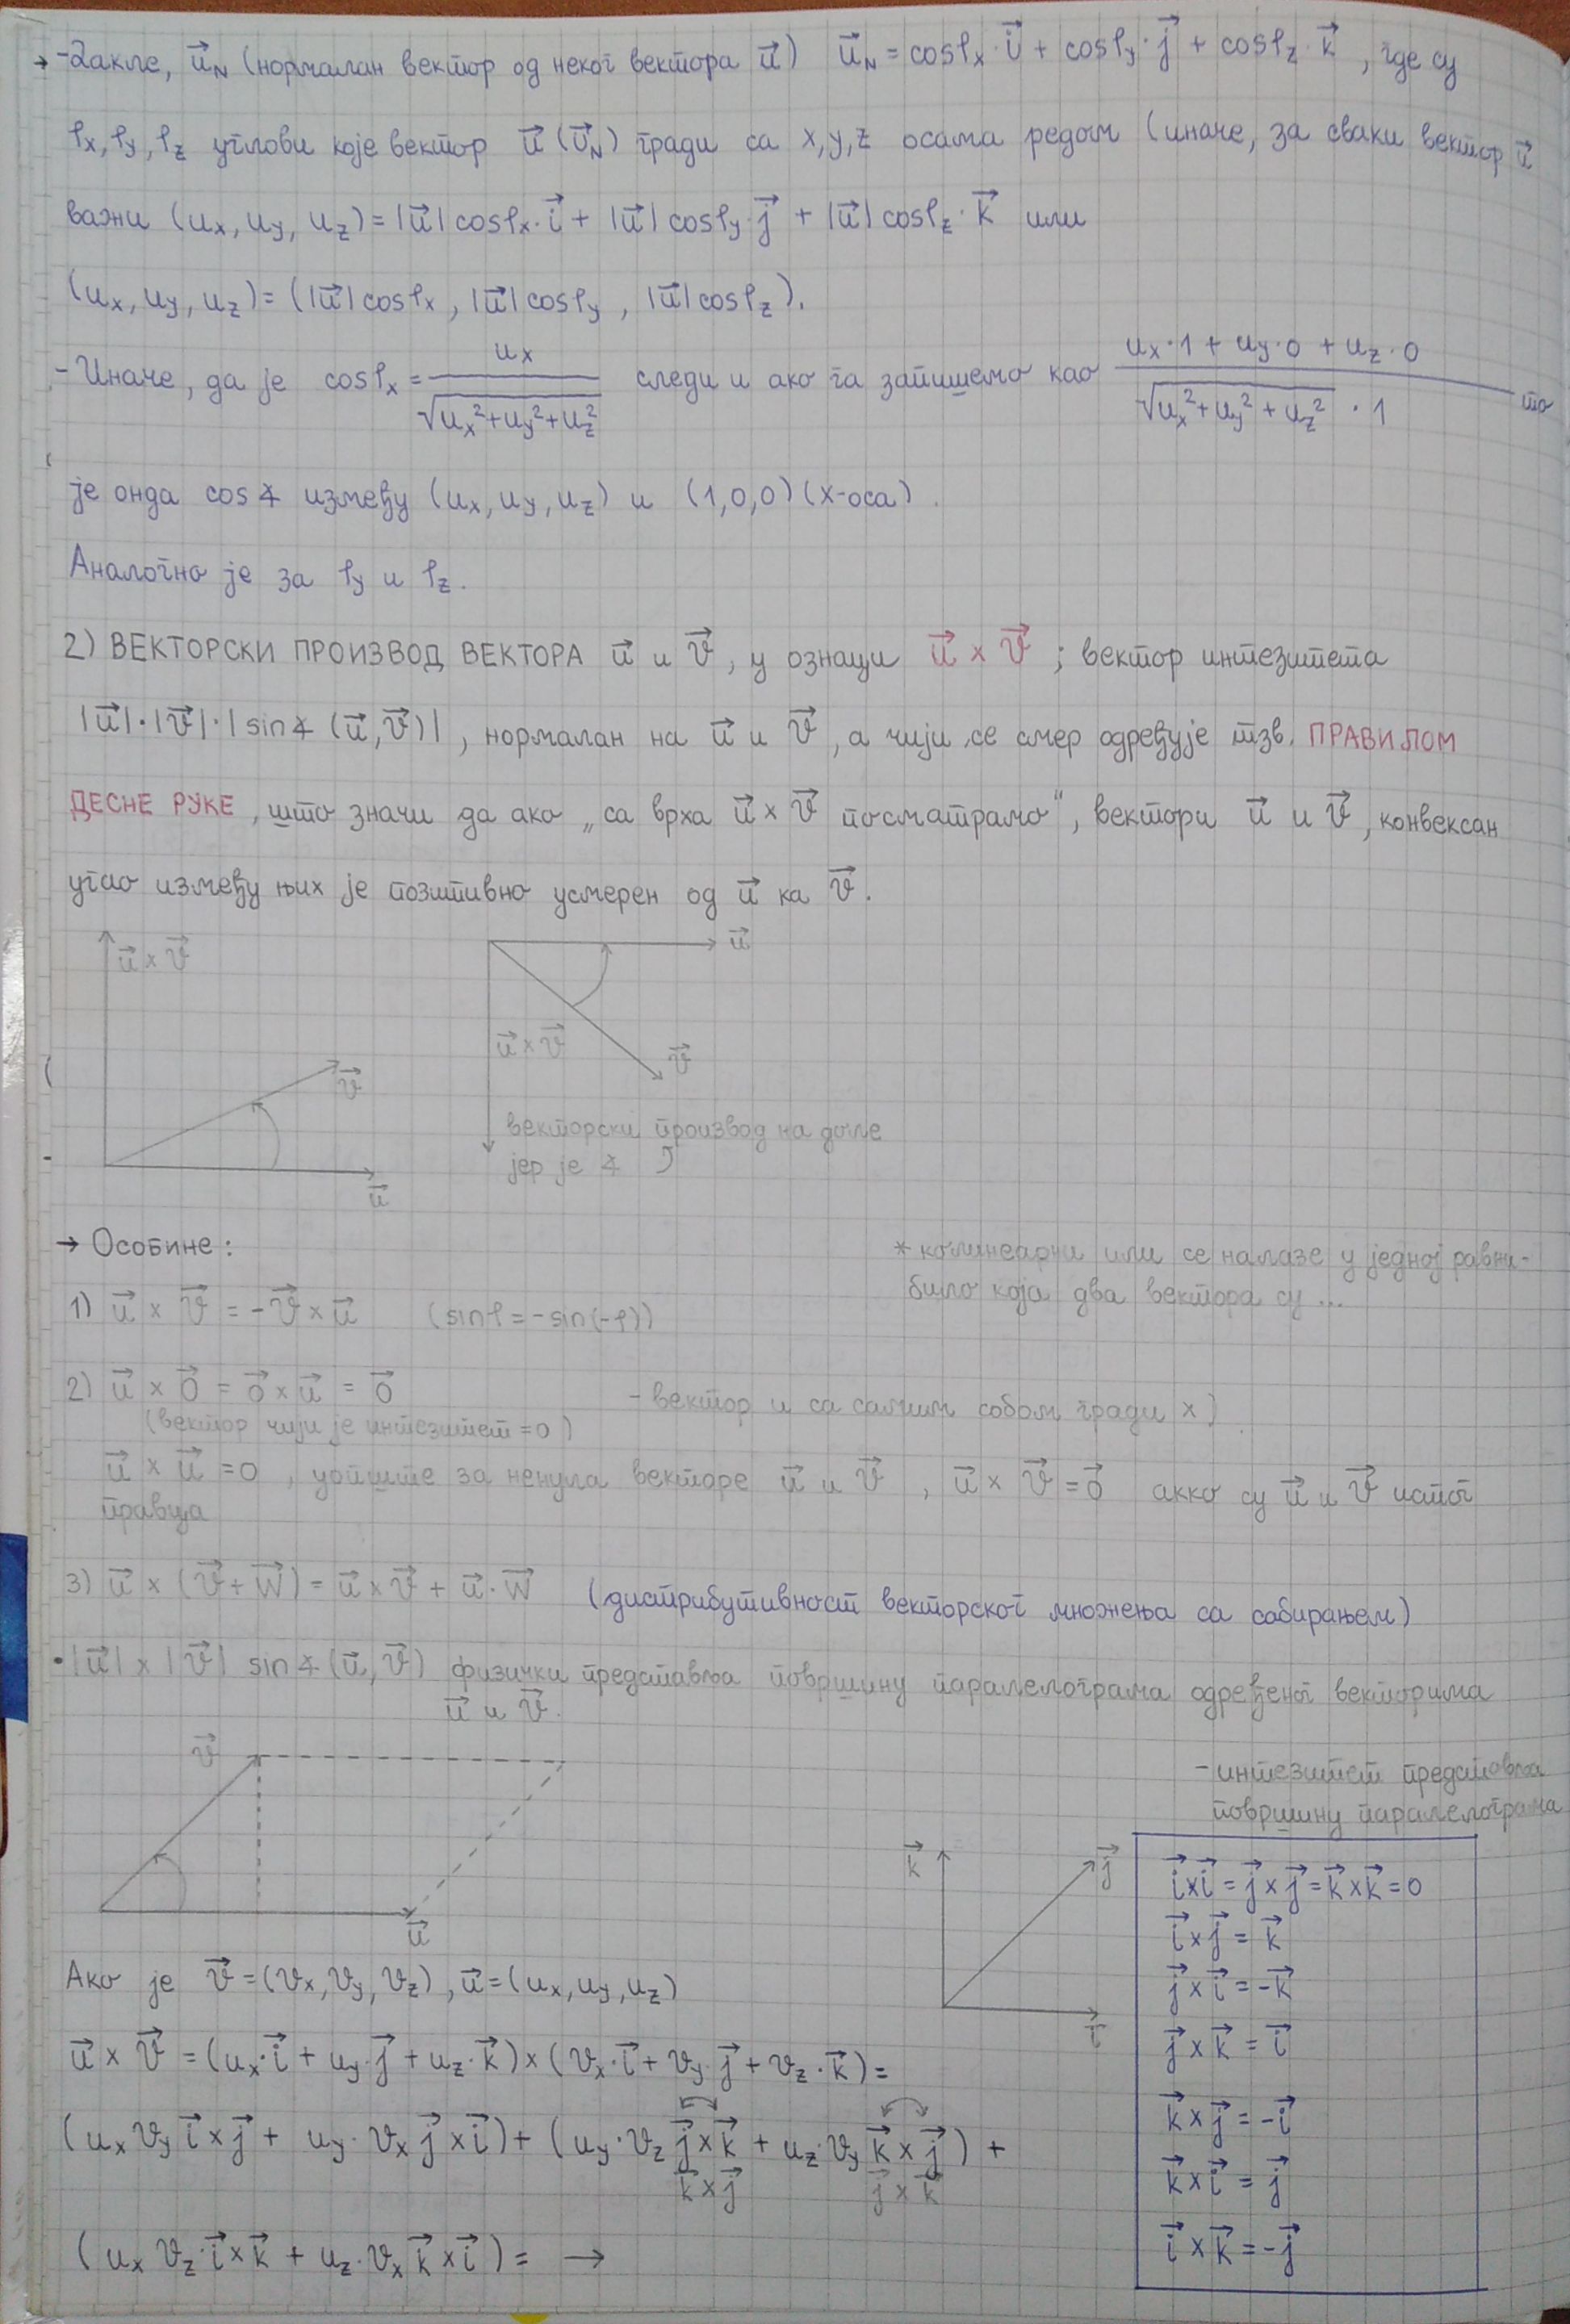 → -Дакле, u⃗_N (нормалан вектор од неког вектора u⃗) u⃗_N = cosφ_x·i⃗ + cosφ_y·j⃗ + cosφ_z·k⃗, где су
φ_x, φ_y, φ_z углови које вектор u⃗ (u⃗_N) гради са x, y, z осама редом (иначе, за сваки вектор u⃗
важи (u_x, u_y, u_z) = |u⃗| cosφ_x·i⃗ + |u⃗| cosφ_y·j⃗ + |u⃗| cosφ_z·k⃗ или
(u_x, u_y, u_z) = (|u⃗| cosφ_x, |u⃗| cosφ_y, |u⃗| cosφ_z).
- Иначе, да је cosφ_x = u_x / √(u_x²+u_y²+u_z²) следи и ако га запишемо као (u_x·1 + u_y·0 + u_z·0) / (√(u_x²+u_y²+u_z²)·1) то
је онда cos∡ између (u_x, u_y, u_z) и (1,0,0) (x-оса).
Аналогно је за φ_y и φ_z.
2) ВЕКТОРСКИ ПРОИЗВОД ВЕКТОРА u⃗ и v⃗, у ознаци u⃗ × v⃗; вектор интезитета
|u⃗|·|v⃗|·|sin∡(u⃗,v⃗)|, нормалан на u⃗ и v⃗, а чији се смер одређује тзв. ПРАВИЛОМ
ДЕСНЕ РУКЕ, што значи да ако „са врха u⃗ × v⃗ посматрамо“, вектори u⃗ и v⃗, конвексан
угао између њих је позитивно усмерен од u⃗ ка v⃗.
u⃗ × v⃗
v⃗
u⃗
u⃗
u⃗ × v⃗
v⃗
векторски производ на доле
јер је ∡ ⤸
→ Особине:
* колинеарни или се налазе у једној равни-
било која два вектора су ...
1) u⃗ × v⃗ = -v⃗ × u⃗ (sinφ = -sin(-φ))
2) u⃗ × 0⃗ = 0⃗ × u⃗ = 0⃗ - вектор и са самим собом гради ×)
(вектор чији је интезитет = 0)
u⃗ × u⃗ = 0, уопште за ненула векторе u⃗ и v⃗, u⃗ × v⃗ = 0⃗ акко су u⃗ и v⃗ истог
правца
3) u⃗ × (v⃗ + w⃗) = u⃗ × v⃗ + u⃗ · w⃗ (дистрибутивност векторског множења са сабирањем)
• |u⃗| × |v⃗| sin∡(u⃗,v⃗) физички представља површину паралелограма одређеног векторима
u⃗ и v⃗.
v⃗
u⃗
- интезитет представља
површину паралелограма
k⃗
j⃗
i⃗
i⃗×i⃗ = j⃗×j⃗ = k⃗×k⃗ = 0
i⃗×j⃗ = k⃗
j⃗×i⃗ = -k⃗
j⃗×k⃗ = i⃗
k⃗×j⃗ = -i⃗
k⃗×i⃗ = j⃗
i⃗×k⃗ = -j⃗
Ако је v⃗ = (v_x, v_y, v_z), u⃗ = (u_x, u_y, u_z)
u⃗ × v⃗ = (u_x·i⃗ + u_y·j⃗ + u_z·k⃗) × (v_x·i⃗ + v_y·j⃗ + v_z·k⃗) =
(u_x v_y i⃗×j⃗ + u_y·v_x j⃗×i⃗) + (u_y·v_z j⃗×k⃗ + u_z·v_y k⃗×j⃗) +
k⃗×j⃗ j⃗×k⃗
(u_x v_z·i⃗×k⃗ + u_z·v_x k⃗×i⃗) = →